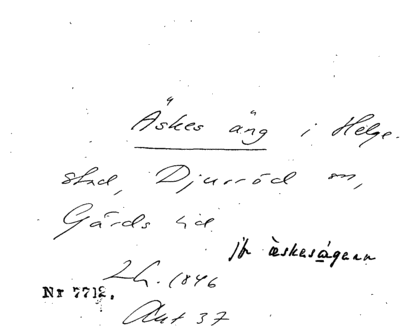 Äskes äng i Helge-
stad, Djurröd sn,
Gärds hd
jfr äskesägann
Lh. 1846
Nr 7712.
Akt 37